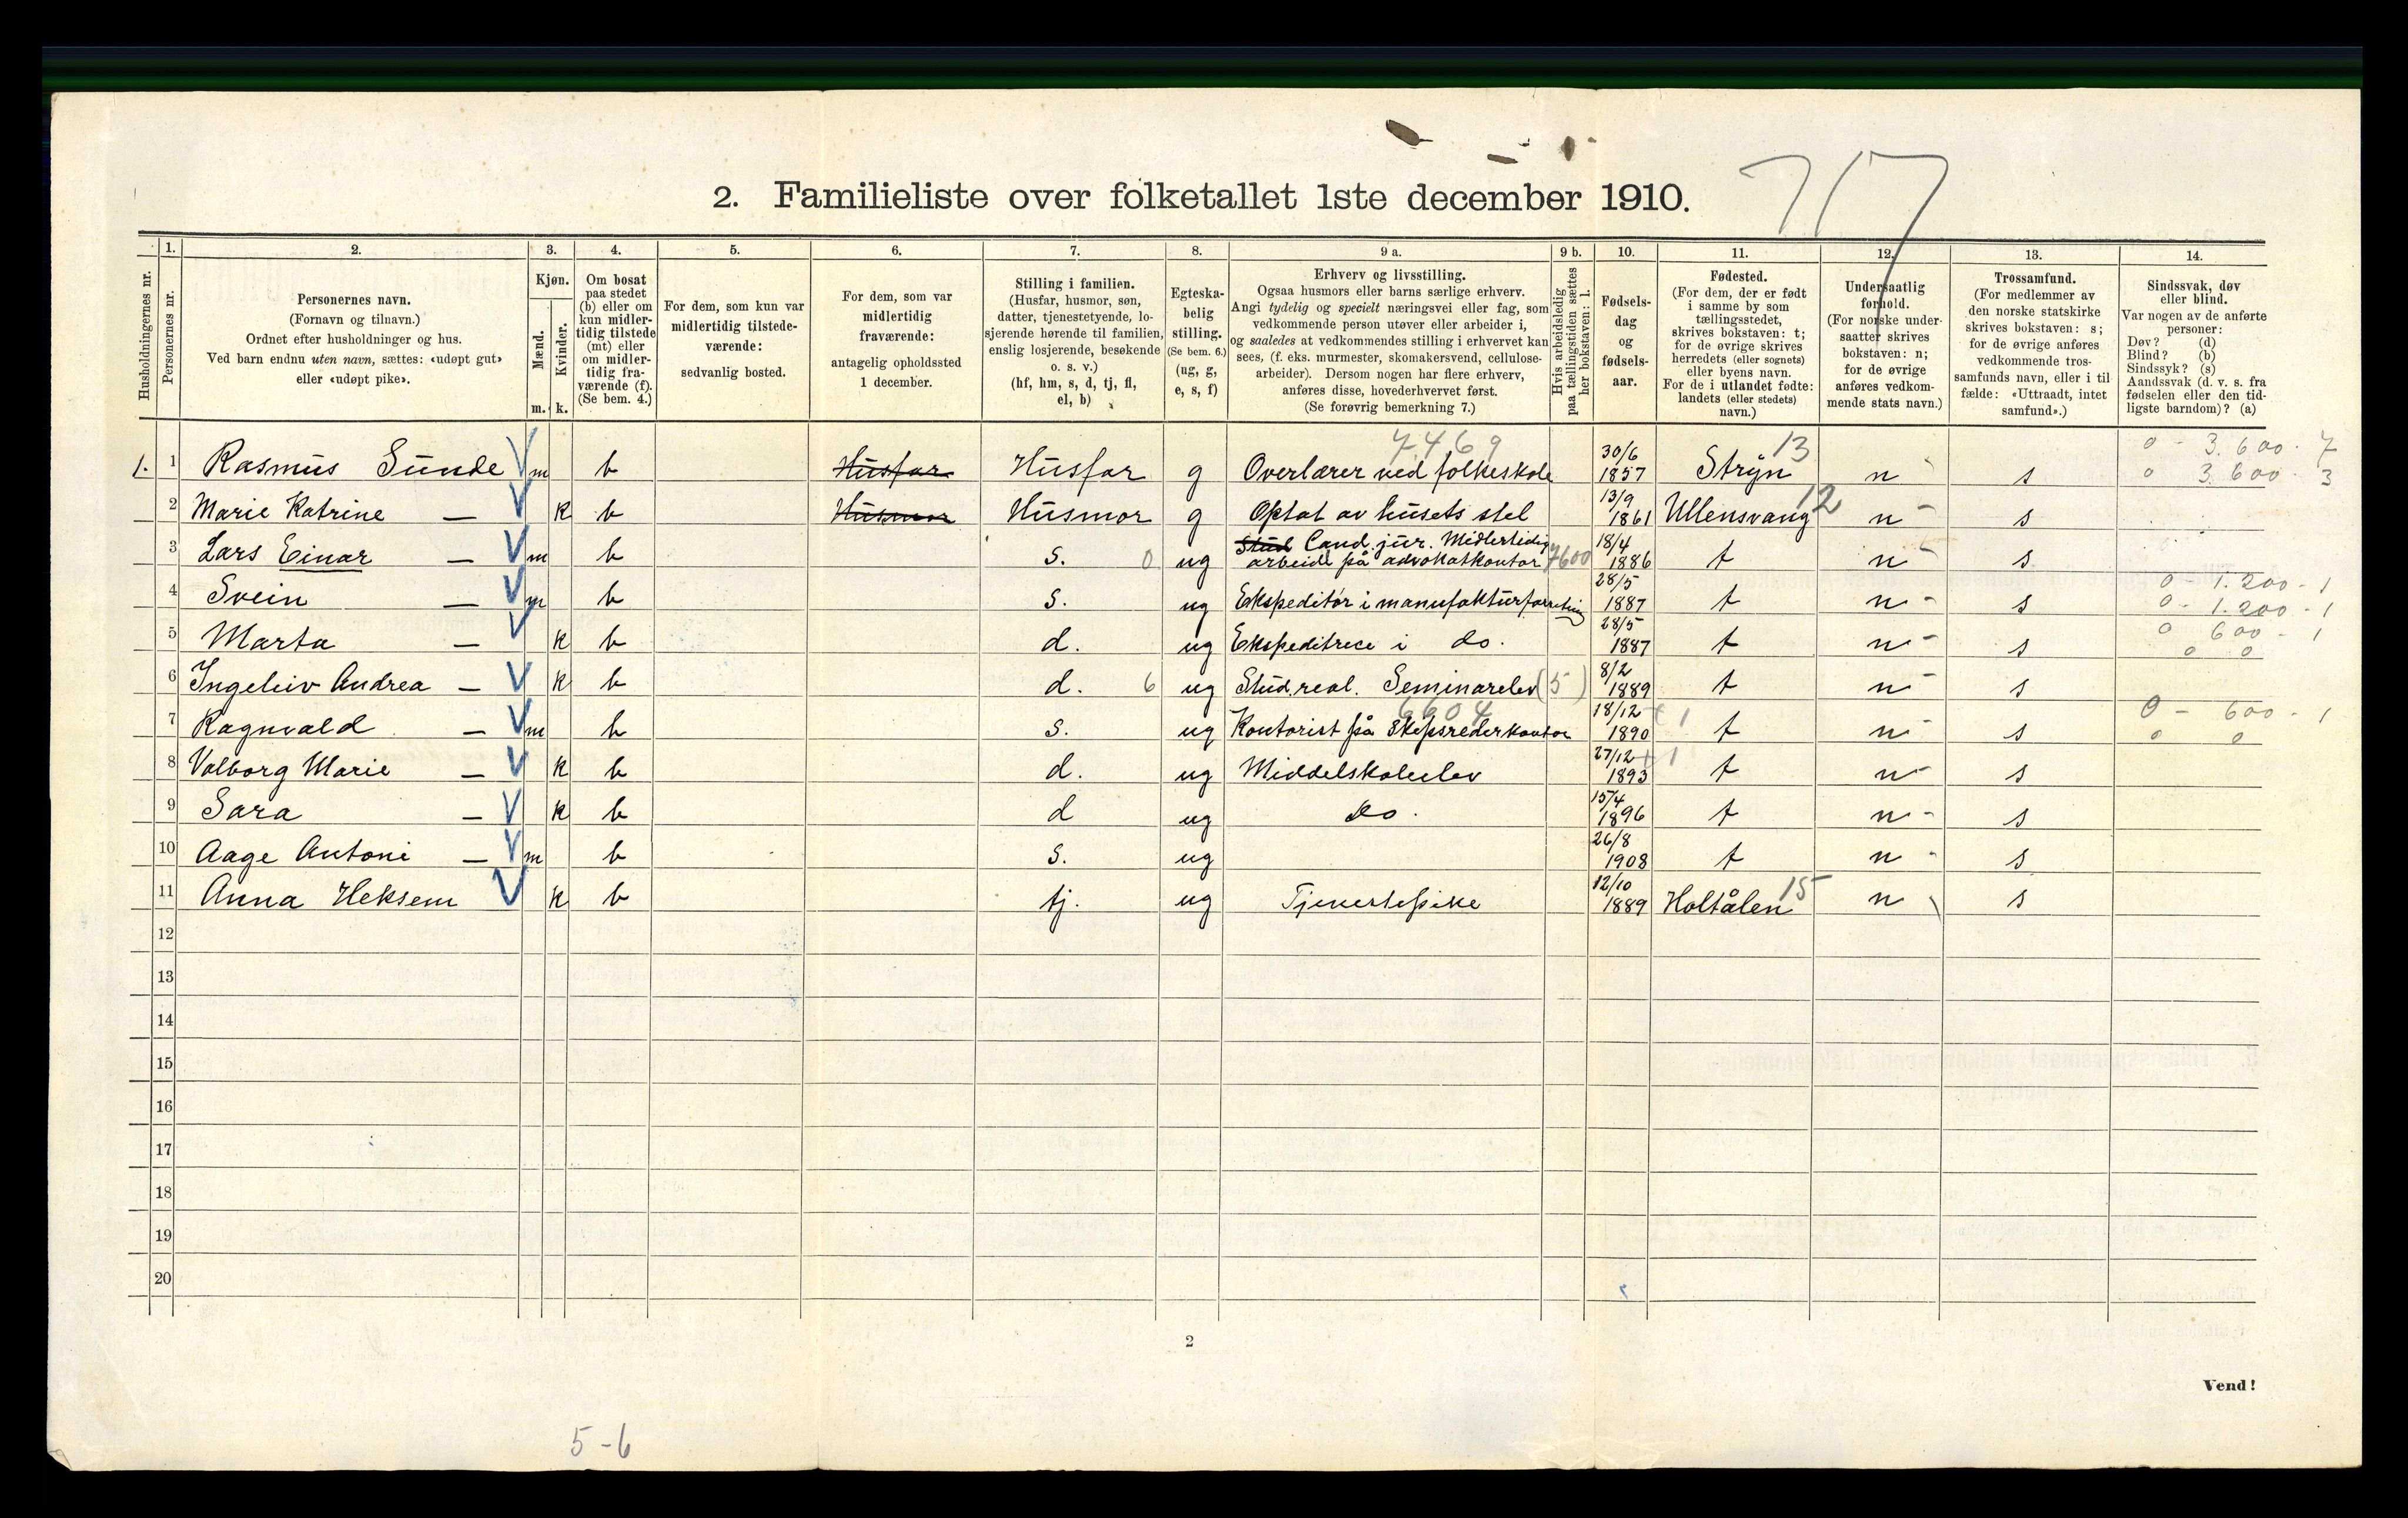 717
2. Familieliste over folketallet 1ste december 1910.
Husholdningernes nr.
1. Personernes nr.
2. Personernes navn.
(Fornavn og tilnavn.)
Ordnet efter husholdninger og hus.
Ved barn endnu uten navn, sættes: «udøpt gut»
eller «udøpt pike».
3. Kjøn.
Mænd. Kvinder.
m. k.
4. Om bosat
paa stedet
(b) eller om
kun midler-
tidig tilstede
(mt) eller
om midler-
tidig fra-
værende (f).
(Se bem. 4.)
5. For dem, som kun var
midlertidig tilstede-
værende:
sedvanlig bosted.
6. For dem, som var
midlertidig
fraværende:
antagelig opholdssted
1 december.
7. Stilling i familien.
(Husfar, husmor, søn,
datter, tjenestetyende, lo-
sjerende hørende til familien,
enslig losjerende, besøkende
o. s. v.)
(hf, hm, s, d, tj, fl,
el, b)
8. Egteska-
belig
stilling.
(Se bem. 6.)
(ug, g,
e, s, f)
9 a. Erhverv og livsstilling.
Ogsaa husmors eller barns særlige erhverv.
Angi tydelig og specielt næringsvei eller fag, som
vedkommende person utøver eller arbeider i,
og saaledes at vedkommendes stilling i erhvervet kan
sees, (f. eks. murmester, skomakersvend, cellulose-
arbeider). Dersom nogen har flere erhverv,
anføres disse, hovederhvervet først.
(Se forøvrig bemerkning 7.)
9 b. Hvis arbeidsledig
paa tællingstiden sættes
her bokstaven: l.
10. Fødsels-
dag
og
fødsels-
aar.
11. Fødested.
(For dem, der er født
i samme by som
tællingsstedet,
skrives bokstaven: t;
for de øvrige skrives
herredets (eller sognets)
eller byens navn.
For de i utlandet fødte:
landets (eller stedets)
navn.)
12. Undersaatlig
forhold.
(For norske under-
saatter skrives
bokstaven: n;
for de øvrige
anføres vedkom-
mende stats navn.)
13. Trossamfund.
(For medlemmer av
den norske statskirke
skrives bokstaven: s;
for de øvrige anføres
vedkommende tros-
samfunds navn, eller i til
fælde: «Uttraadt, intet
samfund».)
14. Sindssvak, døv
eller blind.
Var nogen av de anførte
personer:
Døv? (d)
Blind? (b)
Sindssyk? (s)
Aandssvak (d. v. s. fra
fødselen eller den tid-
ligste barndom)? (a)
7469 13 0 - 3.600 - 7
1. 1 Rasmus Sunde V m b Husfar Husfar g Overlærer ved folkeskole 30/6 1857 Stryn n s 0 3.600 - 3
2 Marie Katrine — V k b Husmor Husmor g Optat av husets stel 13/9 1861 Ullensvang 12 n - s
3 Lars Einar — V m b s. 0 ug Stud Cand. jur. Midlertidig arbeide på advokatkontor 7600 18/4 1886 t n - s
0 - 1.200 - 1
4 Svein — V m b s. ug Ekspeditør i manufakturforretning 28/5 1887 t n - s 0 - 1.200 - 1
5 Marta — V k b d. ug Ekspeditrece i do. 28/5 1887 t n - s 0 600 - 1
0 0
6 Ingeleiv Andrea — V k b d. 6 ug Stud. real. Seminarelev (5) 8/2 1889 t n - s
6604
7 Ragnvald — V m b s. ug Kontorist på Skipsrederkontor 18/12 1890 t 1 t n - s 0 - 600 - 1
0 0
8 Valborg Marie — V k b d. ug Middelskoleelev 27/12 1893 t 1 t n - s
9 Sara — V k b d ug do. 15/4 1896 t n - s
10 Aage Antoni — V m b s. ug 26/8 1908 t n - s
11 Anna Heksem V k b tj. ug Tjenestepike 12/10 1889 Holtålen 15 n s
12
13
14
15
16
17
18
19
20
2
Vend!
5-6